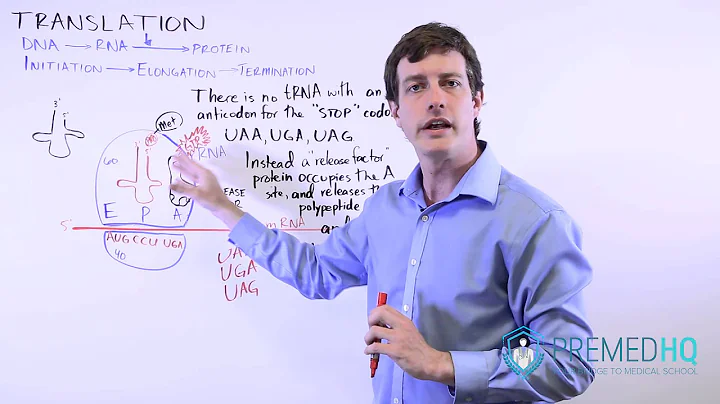 TRANSLATION
DNA → RNA → PROTEIN
INITIATION → ELONGATION → TERMINATION
THERE IS NO tRNA WITH AN
ANTICODON FOR THE "STOP" CODO
UAA, UGA, UAG
INSTEAD A "RELEASE FACTOR"
PROTEIN OCCUPIES THE A
SITE, AND RELEASES TH
POLYPEPTIDE
3' 5'
Met
60
RNA
EASE
E P A
5'
mRNA
AUG CCU UGA
40
UA
UGA
UAG
PREMEDHQ
TO MEDICAL SCHOOL